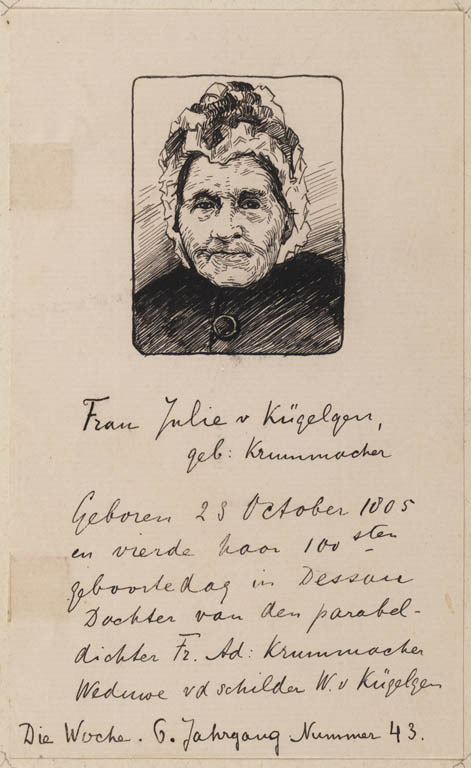 Frau Julie v Kügelgen,
geb: Krummacher
Geboren 23 October 1805
en vierde haar 100sten
geboortedag in Dessau
Dochter van den parabel-
dichter Fr. Ad: Krummacher
Weduwe vd schilder W. v Kügelgen
Die Woche. 6. Jahrgang Nummer 43.